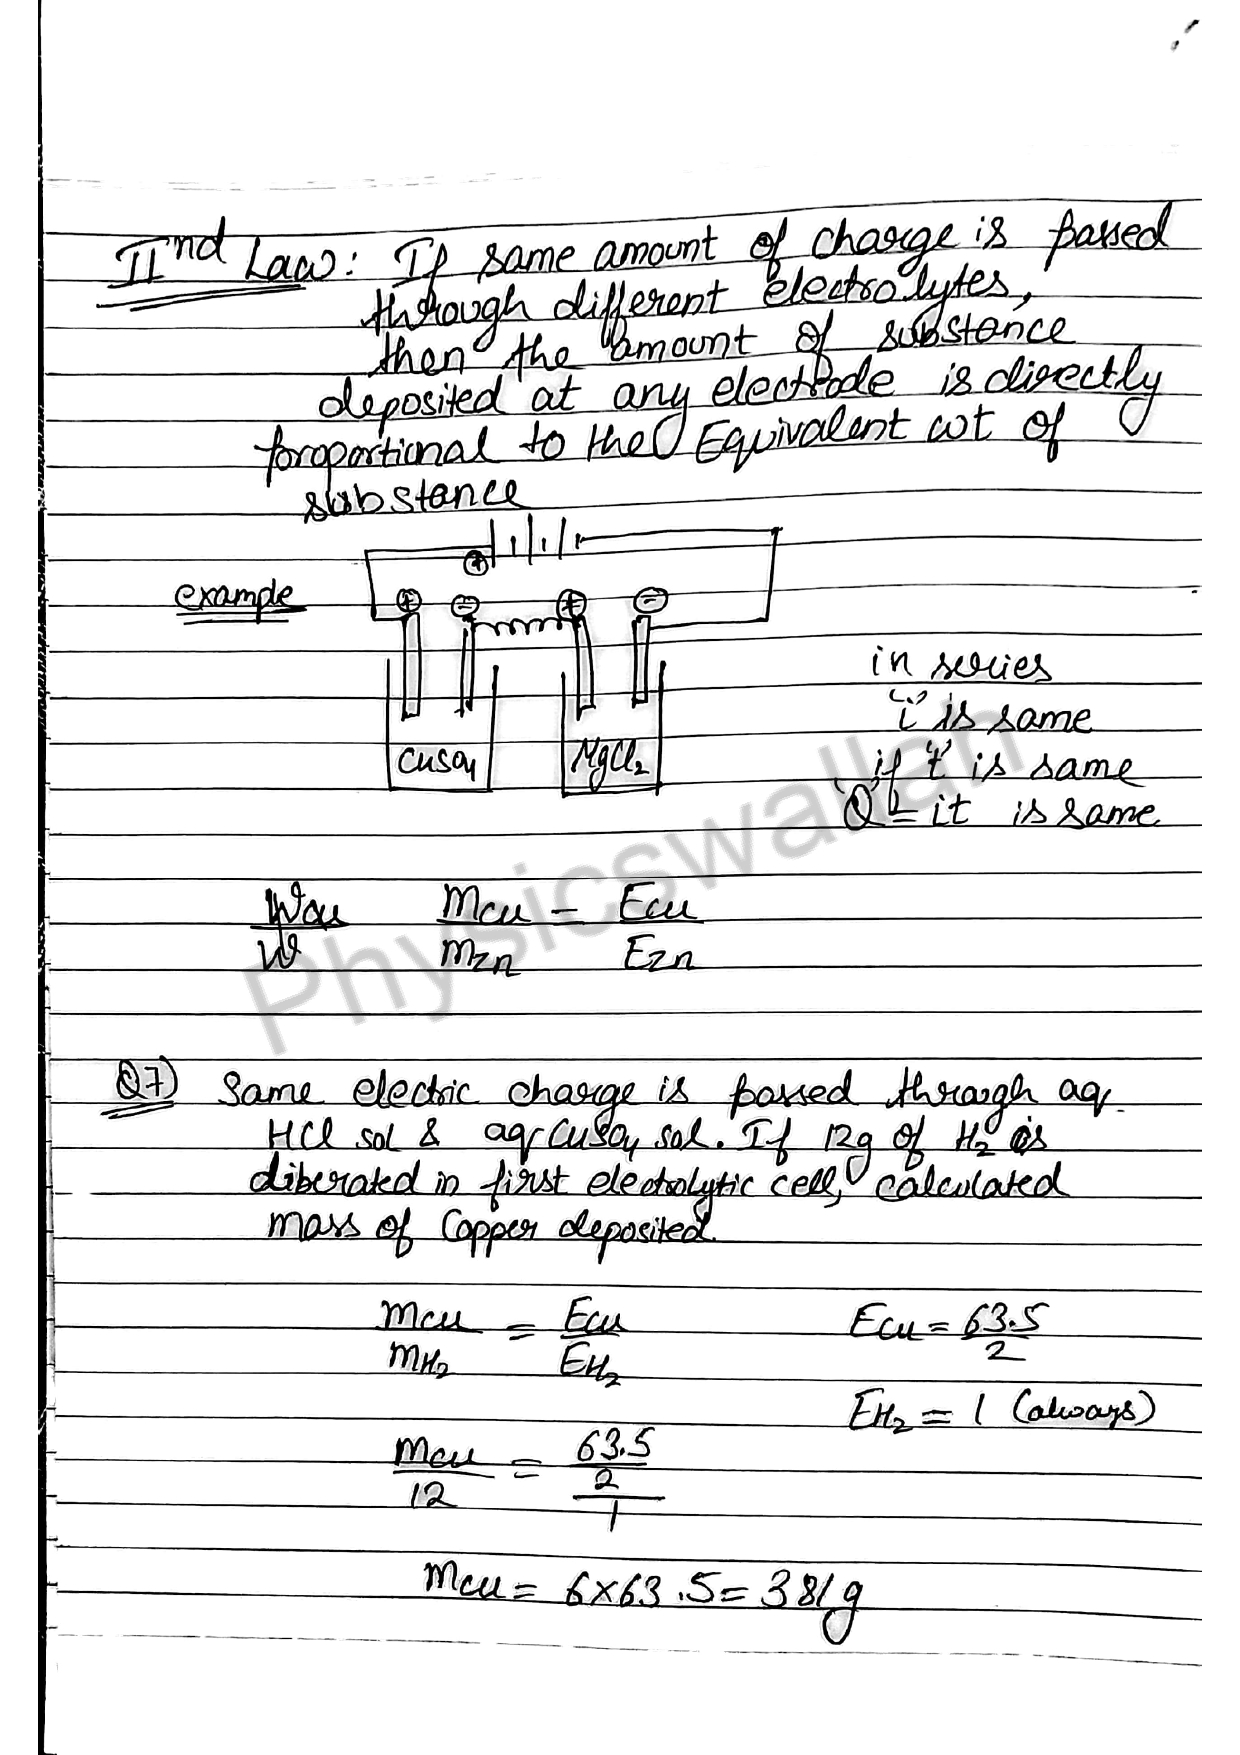 IInd Law: If same amount of charge is passed
through different electrolytes,
then the amount of substance
deposited at any electrode is directly
proportional to the Equivalent wt of
substance
example
+
+ - + -
CuSO4 MgCl2
in series
'i' is same
if 't' is same
'Q' = it is same
WCu / W mCu / mZn = ECu / EZn
Physicswallah
Q7) Same electric charge is passed through aq.
HCl sol & aq CuSO4 sol. If 12g of H2 is
liberated in first electrolytic cell, calculated
mass of Copper deposited.
mCu / mH2 = ECu / EH2 ECu = 63.5 / 2
EH2 = 1 (always)
mCu / 12 = 63.5 / 2 / 1
mCu = 6×63.5 = 381g